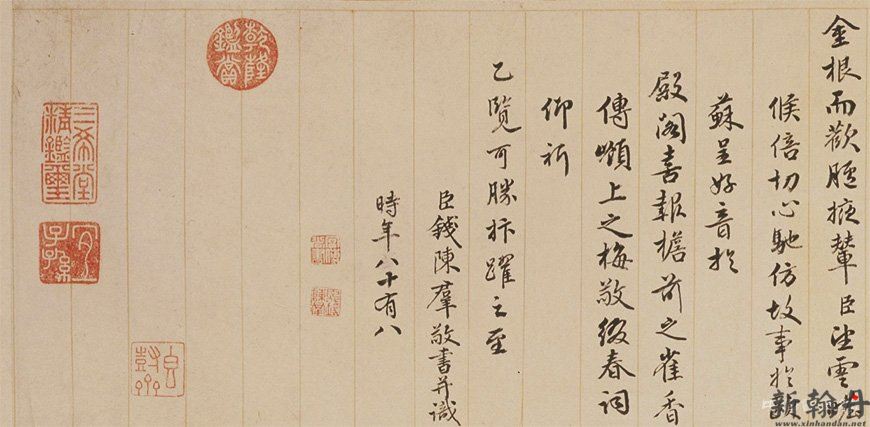 金根而歡臚掖輦臣望雲
候倍切心馳仿故事於
蘇呈好音於
殿閣喜報檐前之雀香
傳嶺上之梅敬綴春詞
仰祈
乙覽可勝抃躍之至
臣錢陳羣敬書并識
時年八十有八
乾隆鑑賞
三希堂精鑑璽
宜子孫
新翰丹
www.xinhandan.net